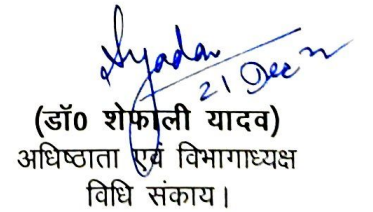 Syadav
21 Dec 22
(डॉ0 शेफाली यादव)
अधिष्ठाता एवं विभागाध्यक्ष
विधि संकाय।